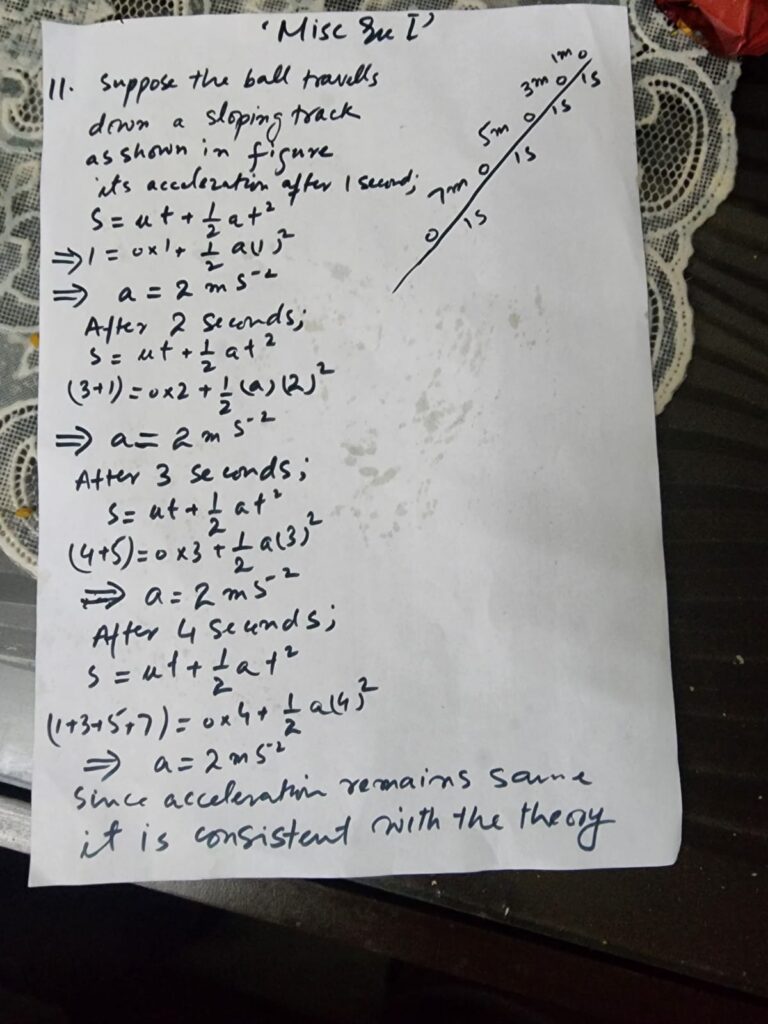 'Misc Ex I'
11. Suppose the ball travells
down a sloping track
as shown in figure
its acceleration after 1 second;
S = ut + 1/2 at²
⇒ 1 = 0x1 + 1/2 a(1)²
⇒ a = 2 m s⁻²
After 2 seconds;
S = ut + 1/2 at²
(3+1) = 0x2 + 1/2 (a)(2)²
⇒ a = 2 m s⁻²
After 3 seconds;
S = ut + 1/2 at²
(4+5) = 0x3 + 1/2 a(3)²
⇒ a = 2 m s⁻²
After 4 seconds;
S = ut + 1/2 at²
(1+3+5+7) = 0x4 + 1/2 a(4)²
⇒ a = 2 m s⁻²
Since acceleration remains same
it is consistent with the theory
1m
1s
3m
1s
5m
1s
7m
1s